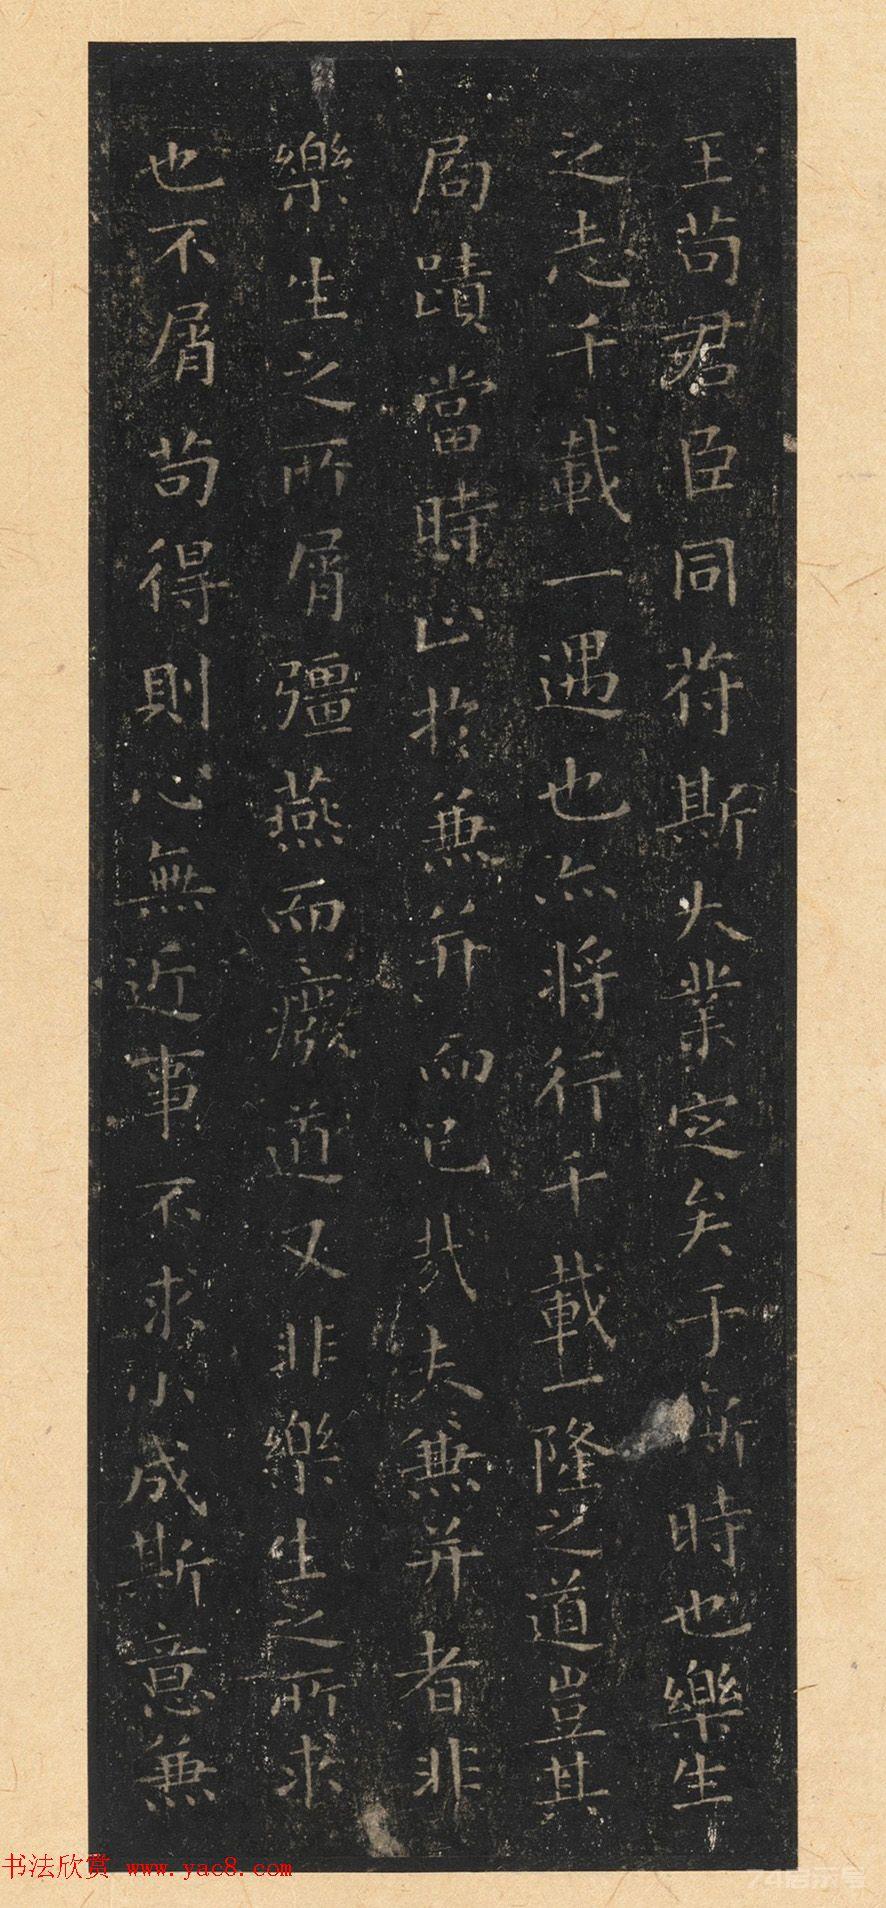 王苟君臣同符斯大業定矣于斯時也樂生
之志千載一遇也亦將行千載一隆之道豈其
局蹟當時止於兼并而已哉夫兼并者非
樂生之所屑彊燕而廢道又非樂生之所求
也不屑苟得則心無近事不求小成斯意兼
书法欣赏 www.yac8.com